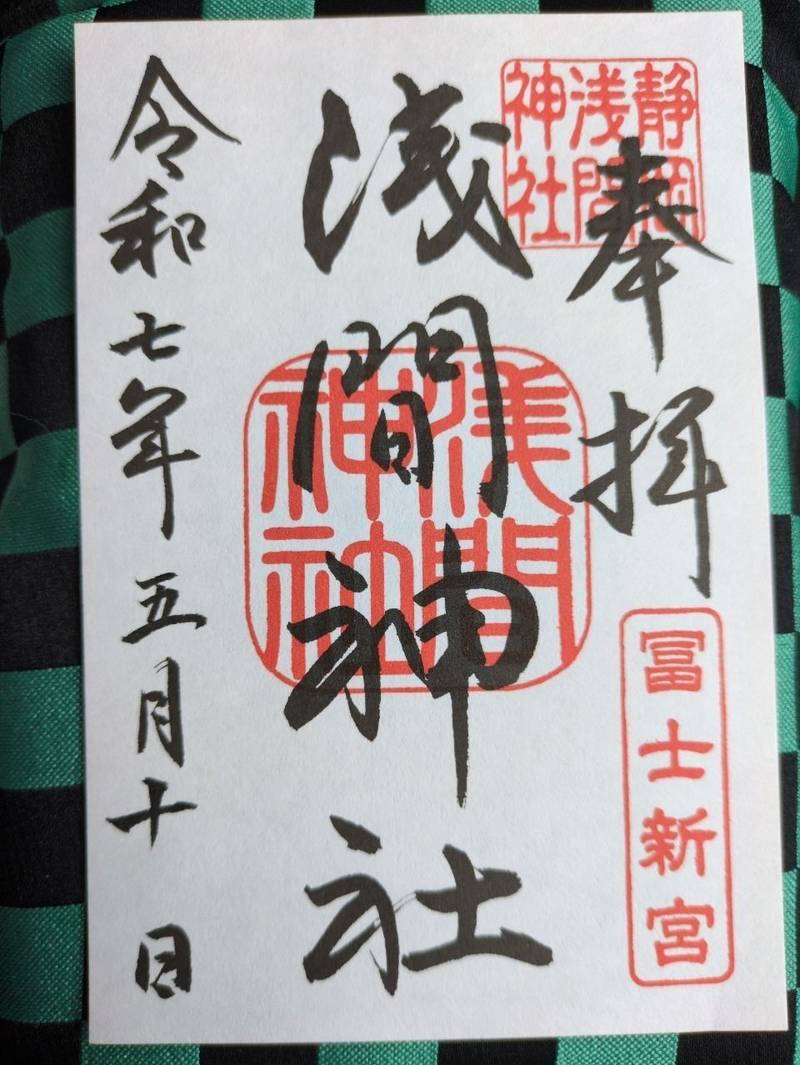 静岡
浅間
神社
奉拝
冨士新宮
浅間神社
浅間
神社
令和七年五月十日